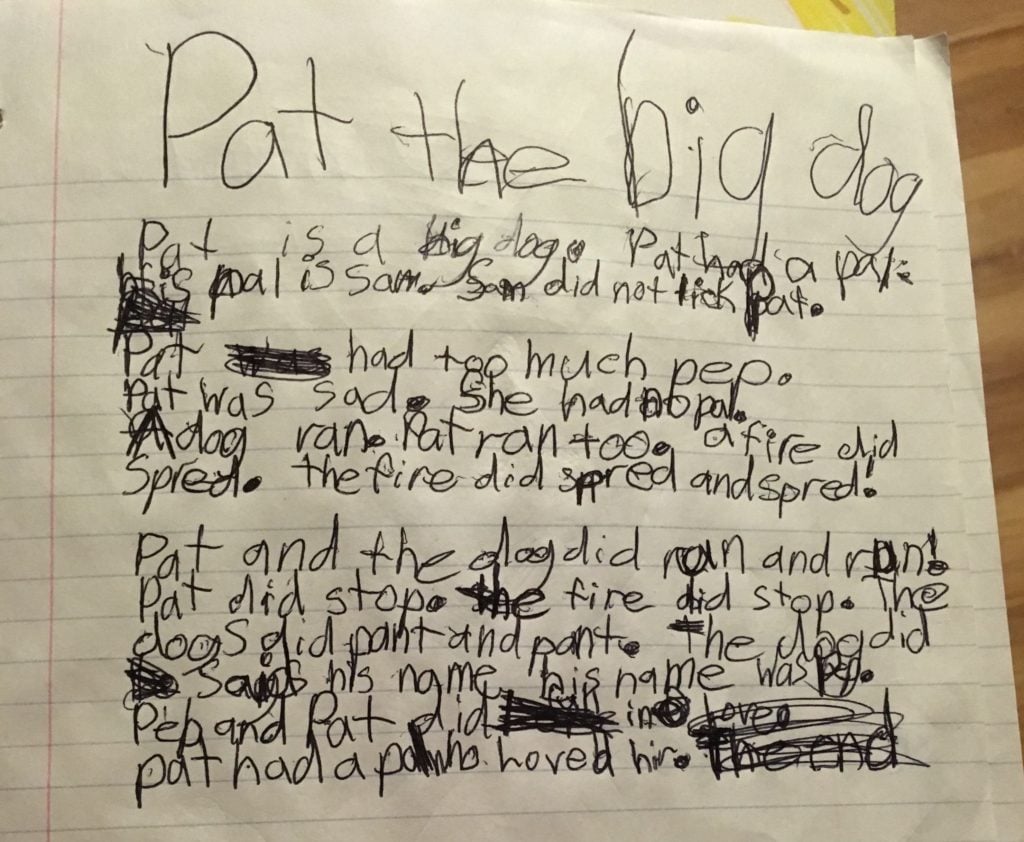 Pat the big dog
Pat is a big dog. Pat had a pal.
his pal is Sam. Sam did not lick pat.
Pat had too much pep.
Pat was sad. She had no pal.
A dog ran. Pat ran too. a fire did
Spred. the fire did spred and spred!
Pat and the dog did ran and ran!
Pat did stop. the fire did stop. The
dogs did pant and pant. The dog did
his name. his name was
Pep and Pat did in
pat had a pal who loved
The end